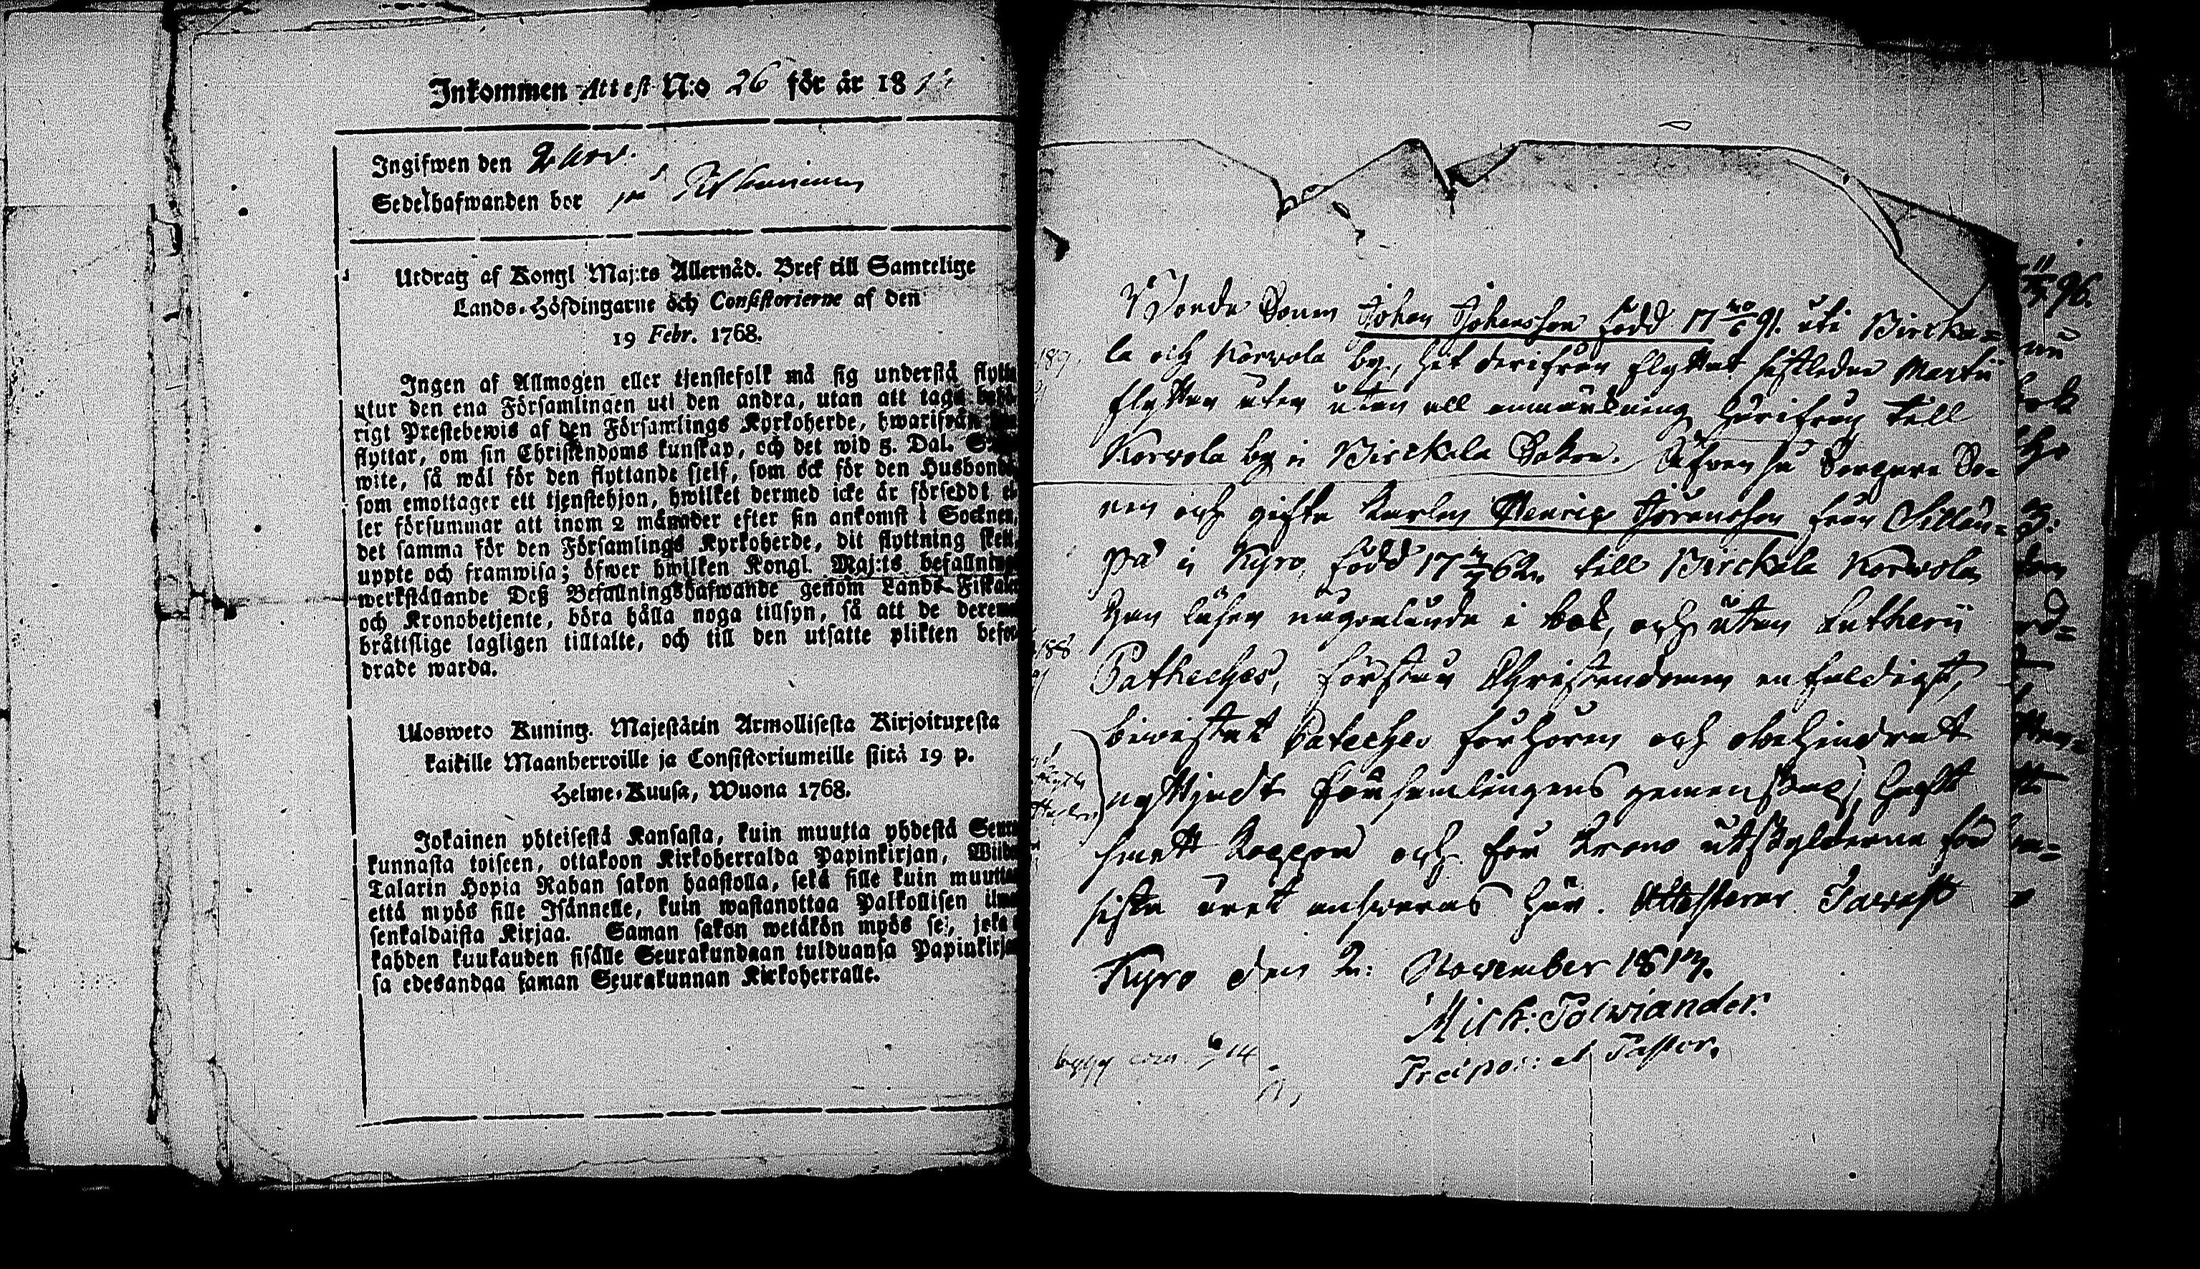 Inkommen Attest N:o 26 för år 18
Ingifwen den 2 nov.
Sedelhafwanden bor på
Utdrag af Kongl Maj:ts Allernåd. Bref till Samtelige
Lands-Höfdingarne och Consistorierne af den
19 Febr. 1768.
Ingen af Allmogen eller tjenstefolk må sig understå flytta
utur den ena Församlingen uti den andra, utan att taga
rigt Prestebewis af den Församlings Kyrkoherde, hwarifrån
flyttar, om sin Christendoms kunskap, och det wid 5. Dal.
wite, så wäl för den flyttande sjelf, som ock för den Husbonde
som emottager ett tjenstehjon, hwilket dermed icke är försedt el
ler försummar att inom 2 månader efter sin ankomst i Socknen,
det samma för den Församlings Kyrkoherde, dit flyttning skett,
uppte och framwisa; öfwer hwilken Kongl Maj:ts befallning
werkställande Deß Befallningshafwande genom Lands-Fiskaler
och Kronobetjente, böra hålla noga tillsyn, så att de deremot
bråttslige lagligen tilltalte, och till den utsatte plikten befor
drade warda.
Ulosweto Kuning. Majestätin Armollisesta Kirjoituxesta
kaikille Maanherroille ja Consistoriumeille siitä 19 p.
Helme-Kuusa, Wuona 1768.
Jokainen yhteisestä Kansasta, kuin muutta yhdestä Seura
kunnasta toiseen, ottakoon Kirkoherralda Papinkirjan, Wiiden
Talarin Hopia Rahan sakon haastolla, sekä sille kuin muutta
että myös sille Isännelle, kuin wastanottaa Palkollisen ilman
senkaldaista Kirjaa. Saman sakon wetäkön myös se, joka
kahden kuukauden sisälle Seurakundaan tulduansa Papinkirja
sa edesandaa saman Seurakunnan Kirkoherralle.
96.
Johan Johansson född 17 91. uti Bircka=
la och Korwola by, hit derifrån flyttat sistledne Martii
flyttar åter utan all anmärkning härifrån till
Korwola by i Birckala Soken. Äfven så
nen och gifta Karlen Henric Göransson från
på i Kyro, född 17 62. till Birckala Korwola
Han läser någorlunda i bok, och utan Lutherii
Catheches, förstår Christendomen enfaldigt,
bevistat Cateches förhören och obehindradt
nyttjadt församlingens gemenskap, haft
smått koppor och för krono utskylderna för
sista året answaras här. Attesterar Tawast
Kyro den 2: November 1813.
Mich: Polviander.
Præpos: et Pastor.